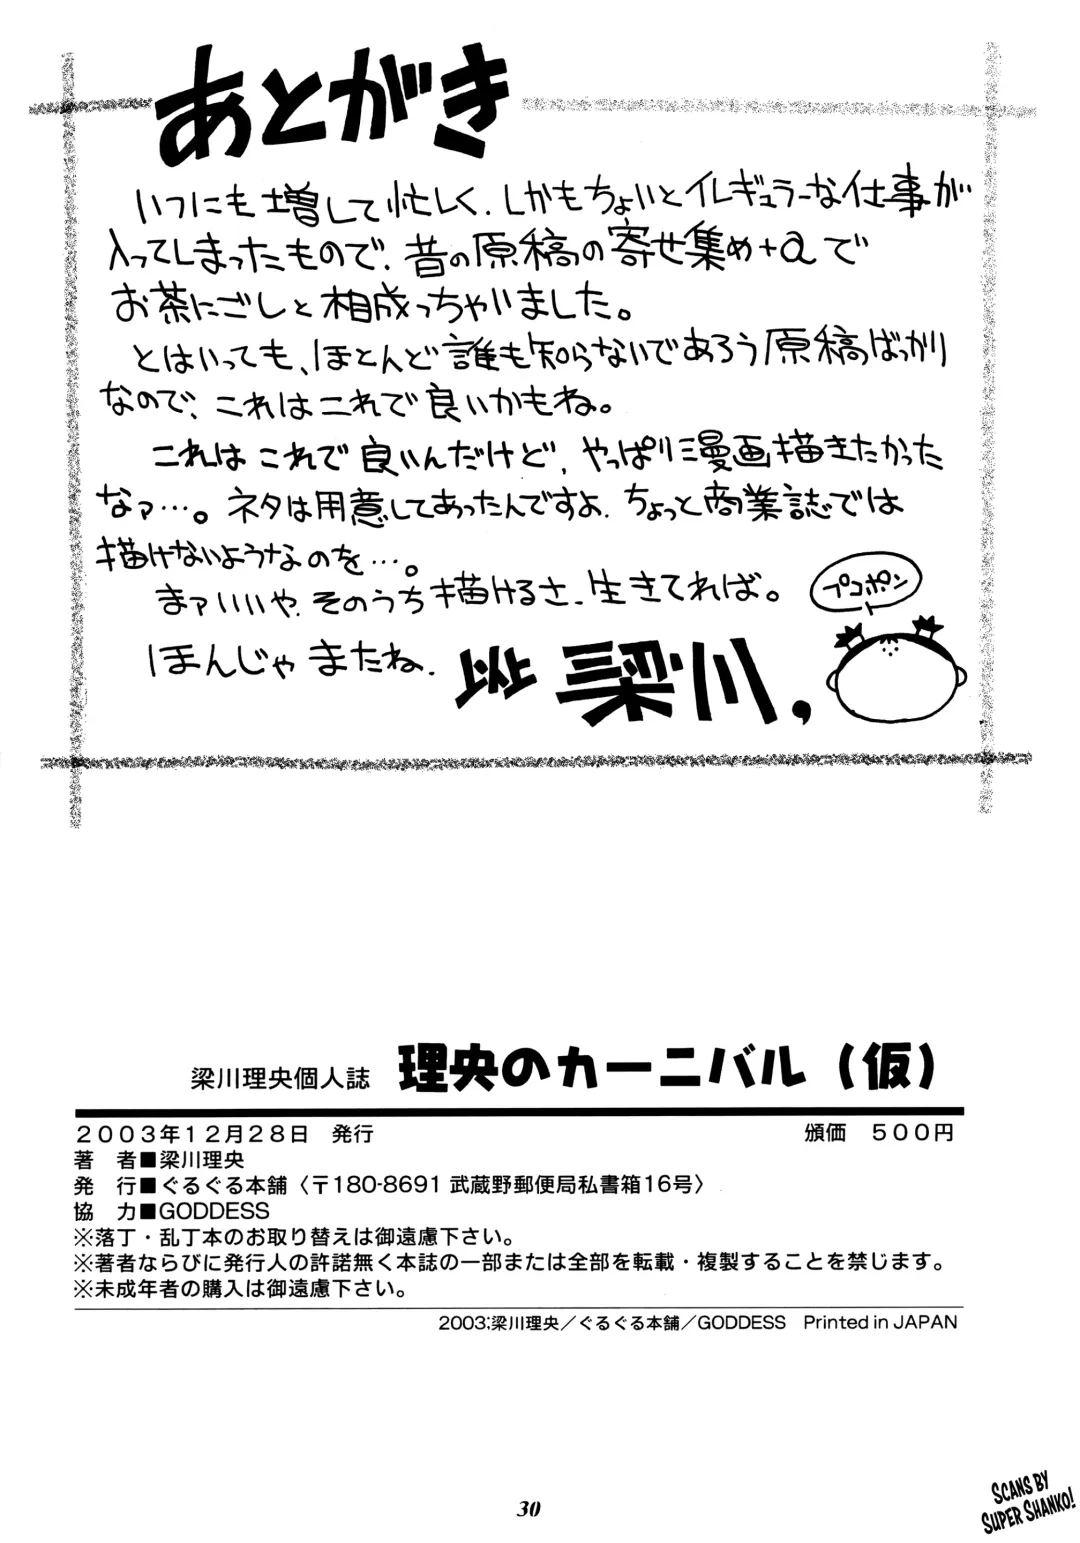 あとがき
いつにも増して忙しく、しかもちょいとイレギュラーな仕事が
入ってしまったもので、昔の原稿の寄せ集め+αで
お茶にごしと相成っちゃいました。
とはいっても、ほとんど誰も知らないであろう原稿ばっかり
なので、これはこれで良いかもね。
これはこれで良いんだけど、やっぱり漫画描きたかった
なァ…。ネタは用意してあったんですよ、ちょっと商業誌では
描けないようなのを…。
まァいいや、そのうち描けるさ、生きてれば。
プコポン
ほんじゃまたね、
以上 梁川,
梁川理央個人誌 理央のカーニバル（仮）
２００３年１２月２８日　発行　頒価　５００円
著　者■梁川理央
発　行■ぐるぐる本舗〈〒180-8691 武蔵野郵便局私書箱16号〉
協　力■GODDESS
※落丁・乱丁本のお取り替えは御遠慮下さい。
※著者ならびに発行人の許諾無く本誌の一部または全部を転載・複製することを禁じます。
※未成年者の購入は御遠慮下さい。
2003:梁川理央／ぐるぐる本舗／GODDESS　Printed in JAPAN
30
SCANS BY
SUPER SHANKO!